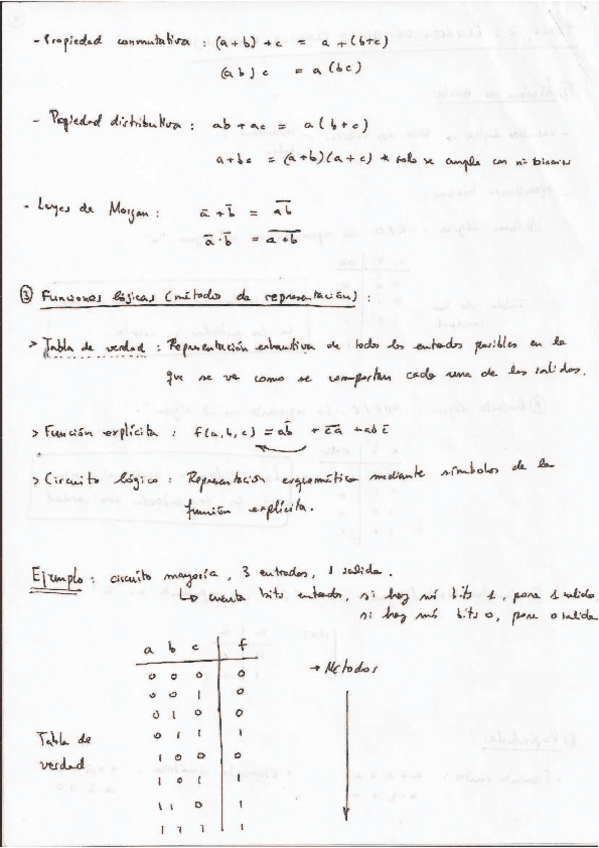 - Propiedad conmutativa : (a+b)+c = a+(b+c)
(ab)c = a(bc)
- Popiedad distributiva : ab+ac = a(b+c)
a+bc = (a+b)(a+c) * solo se cumple con nº binarios
- Leyes de Morgan : a̅ + b̅ = a̅b̅
a̅ · b̅ = a̅+̅b̅
③ Funciones lógicas (métodos de representación) :
> Tabla de verdad : Representación exhaustiva de todas las entradas posibles en la
que se ve como se comportan cada una de las salidas.
> Función explícita : f(a,b,c) = ab̅ + c̅a̅ + abc̅
> Circuito lógico : Representación esquemática mediante símbolos de la
función explícita.
Ejemplo : circuito mayoría, 3 entradas, 1 salida.
↳ cuenta bits entrada, si hay más bits 1, pone 1 salida
si hay más bits 0, pone 0 salida
a b c f
→ Métodos
0 0 0 0
0 0 1 0
0 1 0 0
0 1 1 1
Tabla de verdad
1 0 0 0
1 0 1 1
1 1 0 1
1 1 1 1